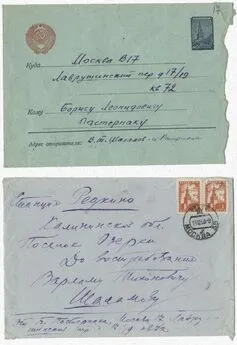 17
Куда
Москва В17
Лаврушинский пер д 17/19
кв 72
Кому
Борису Леонидовичу
Пастернаку
Адрес отправителя: В. Т. Шаламов
Станция Редкино
Калининской обл.
Поселок Озерки
До востребования
Варламу Тихоновичу
Шаламову
МОСКВА
Б. Пастернака, Москва